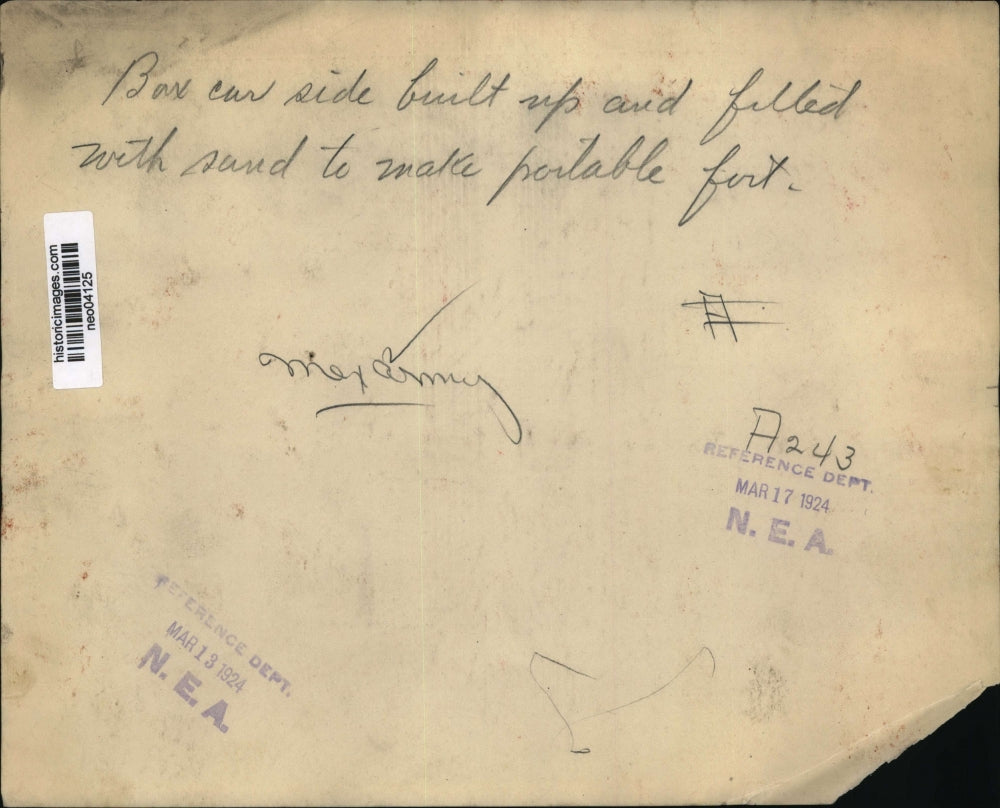 Box car side built up and filled
with sand to make portable fort.
historicimages.com
neo04125
Mex Army
A243
REFERENCE DEPT.
MAR 17 1924
N. E. A.
REFERENCE DEPT.
MAR 13 1924
N. E. A.